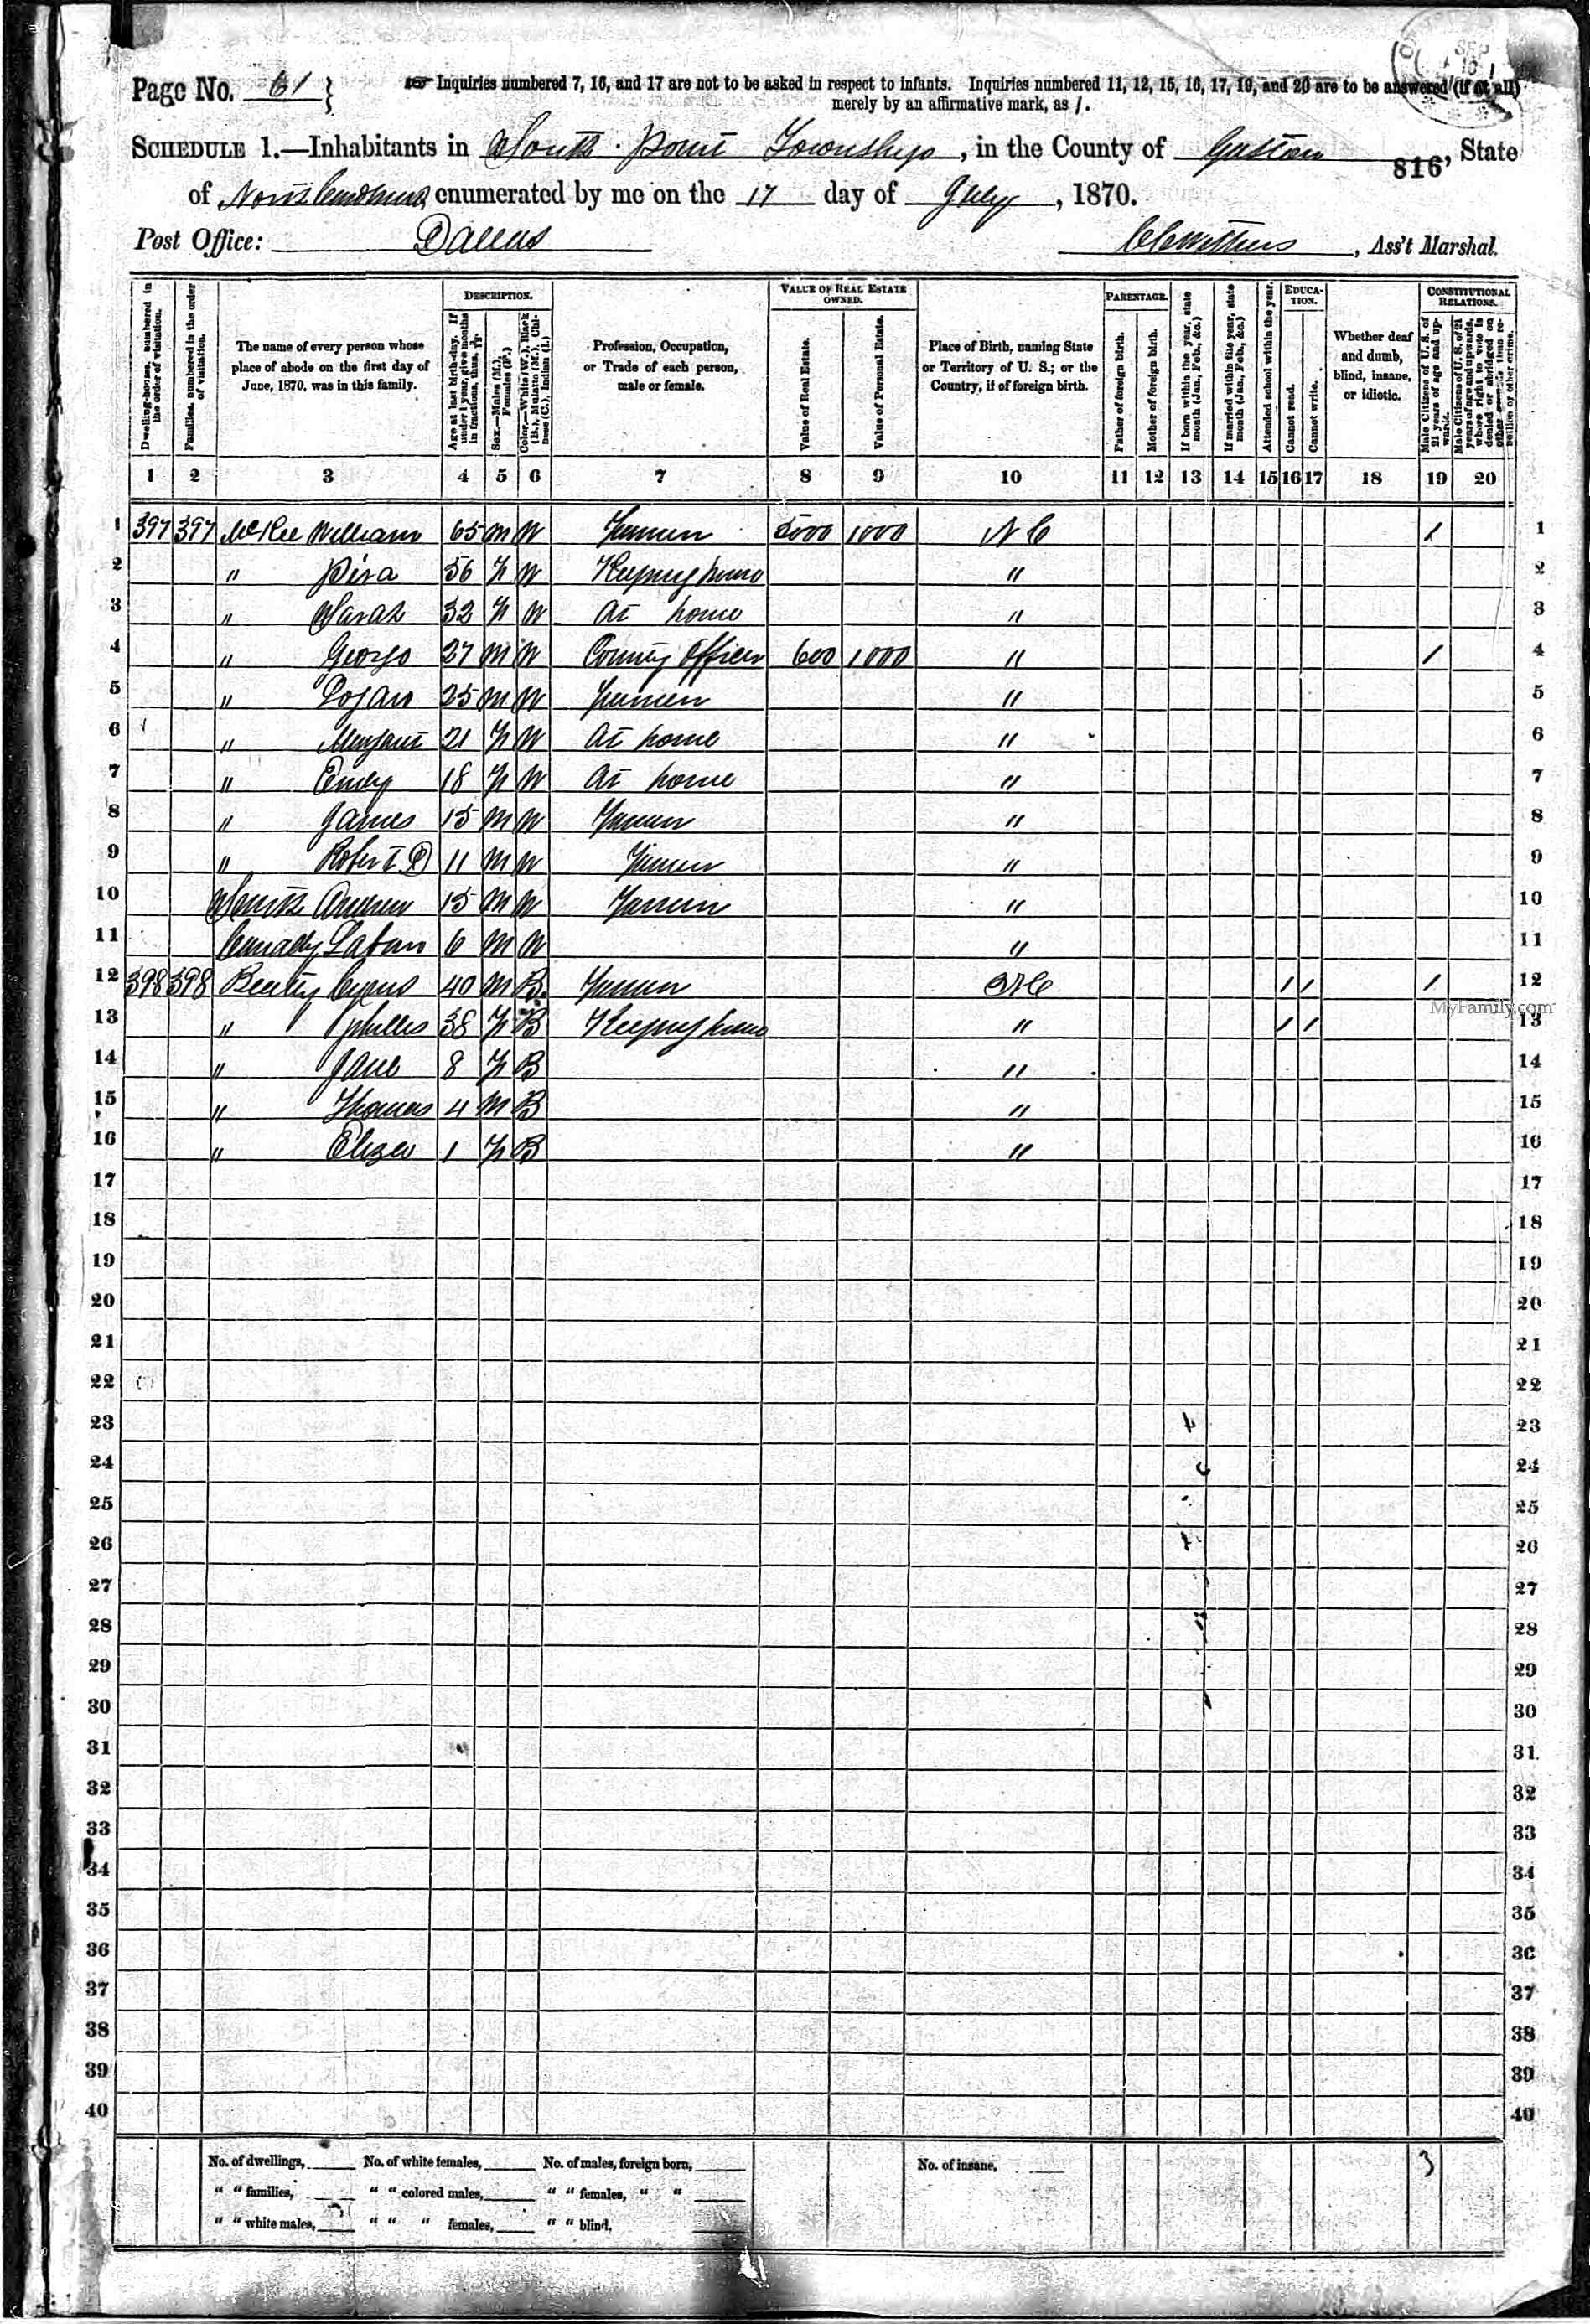 Page No. 61 } Inquiries numbered 7, 16, and 17 are not to be asked in respect to infants. Inquiries numbered 11, 12, 15, 16, 17, 19, and 20 are to be answered (if at all)
merely by an affirmative mark, as /.
SCHEDULE 1.—Inhabitants in South Point Township, in the County of Gaston 816, State
of North Carolina enumerated by me on the 17 day of July, 1870.
Post Office: Dallas , Ass't Marshal.
Dwelling-houses, numbered in the order of visitation.
Families, numbered in the order of visitation.
The name of every person whose place of abode on the first day of June, 1870, was in this family.
DESCRIPTION.
Age at last birth-day. If under 1 year, give months in fractions, thus,
Sex.—Males (M.), Females (F.)
Color.—White (W.), Black (B.), Mulatto (M.), Chinese (C.), Indian (I.)
Profession, Occupation, or Trade of each person, male or female.
VALUE OF REAL ESTATE OWNED.
Value of Real Estate.
Value of Personal Estate.
Place of Birth, naming State or Territory of U. S.; or the Country, if of foreign birth.
PARENTAGE.
Father of foreign birth.
Mother of foreign birth.
If born within the year, state month (Jan, Feb., &c.)
If married within the year, state month (Jan., Feb., &c.)
Attended school within the year.
EDUCATION.
Cannot read.
Cannot write.
Whether deaf and dumb, blind, insane, or idiotic.
CONSTITUTIONAL RELATIONS.
Male Citizens of U. S. of 21 years of age and upwards.
Male Citizens of U. S. of 21 years of age and upwards, whose right to vote is denied or abridged on other grounds than rebellion or other crime.
1 2 3 4 5 6 7 8 9 10 11 12 13 14 15 16 17 18 19 20
1 397 397 McKee William 65 M W Farmer 5000 1000 N C / 1
2 " 56 F W Keeping house " 2
3 " Sarah 32 F W At home " 3
4 " George 27 M W County Officer 600 1000 " / 4
5 " Logan 25 M W Farmer " 5
6 " Margaret 21 F W At home " 6
7 " Emily 18 F W At home " 7
8 " James 15 M W Farmer " 8
9 " Robert 11 M W Farmer " 9
10 Smith Andrew 15 M W Farmer " 10
11 Laban 6 M W " 11
12 398 398 Beatty Cyrus 40 M B. Farmer N C / / / 12
MyFamily.com
13 " Phillis 38 F B Keeping house " / / 13
14 " Jane 8 F B " 14
15 " Thomas 4 M B " 15
16 " Eliza 1 F B " 16
17 17
18 18
19 19
20 20
21 21
22 22
23 23
24 24
25 25
26 26
27 27
28 28
29 29
30 30
31 31
32 32
33 33
34 34
35 35
36 36
37 37
38 38
39 39
40 40
No. of dwellings, No. of white females, No. of males, foreign born, No. of insane, 3
" " families, " " colored males, " " females, " "
" " white males, " " " females, " " blind,